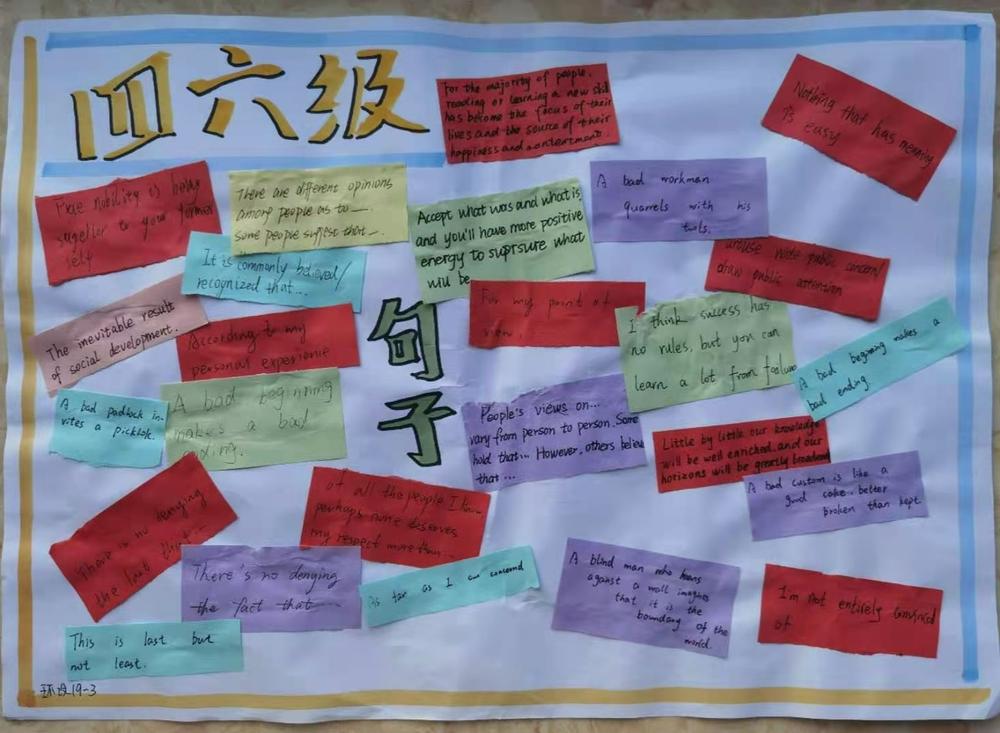 四六级
For the majority of people,
reading or learning a new skill
has become the focus of their
lives and the source of their
happiness and contentment.
Nothing that has meaning
is easy
True nobility is being
to your former
self
There are different opinions
among people as to —.
some people suggest that —.
Accept what was and what is,
and you'll have more positive
energy to suprsure what
will be
A bad workman
quarrels with his
tools.
It is commonly believed/
recognized that...
arouse wide public concern/
draw public attention
The inevitable result
of social development.
According to my
personal experience
句子
For my point of
view,
I think success has
no rules, but you can
learn a lot from failure
A bad beginning makes a
bad ending.
A bad padlock in-
vites a picklok.
A bad beginning
makes a bad
ending.
People's views on...
vary from person to person. Some
hold that... However, others believe
that...
Little by little our knowledge
will be well enriched, and our
horizons will be greatly broadened
A bad custom is like a
good cake, better
broken than kept
There is no denying
the fact that...
of all the people I know
perhaps none deserves
my respect more than...
There's no denying
the fact that —
As far as I am concerned
A blind man who leans
against a wall imagines
that it is the
boundary of the
world.
I'm not entirely convinced
of
This is last but
not least.
环设19-3